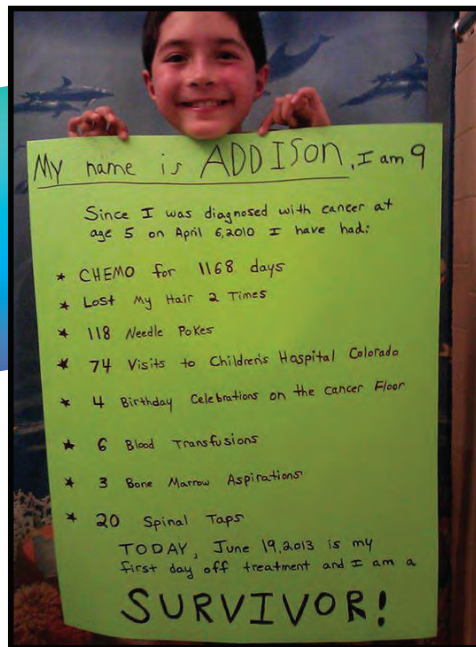 My name is ADDISON, I am 9
Since I was diagnosed with cancer at
age 5 on April 6,2010 I have had:
* CHEMO for 1168 days
* Lost My Hair 2 Times
* 118 Needle Pokes
* 74 Visits to Children's Hospital Colorado
* 4 Birthday Celebrations on the cancer Floor
* 6 Blood Transfusions
* 3 Bone Marrow Aspirations
* 20 Spinal Taps
TODAY, June 19,2013 is my
first day off treatment and I am a
SURVIVOR!